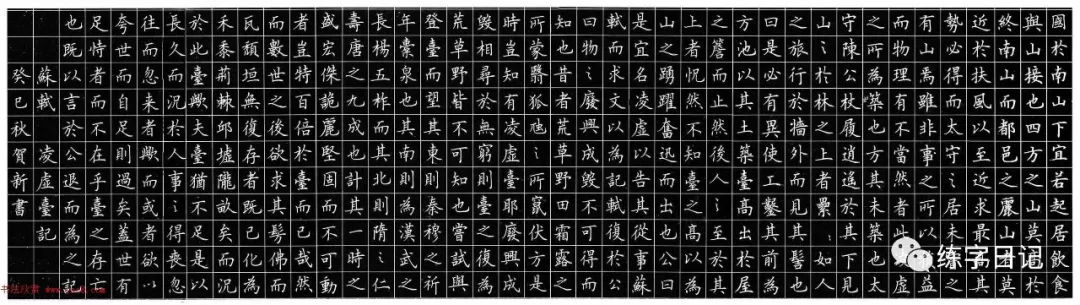 國於南山下宜若起居飲食
與山接也四方之山莫高於
終南山而都邑之麗山者莫
近於扶風以至近求最高其
勢必得而太守之居未嘗知
有山焉雖非事之所以損益
而物理有不當然者此凌虛
之所為築也方其未築也太
守陳公杖履逍遙於其下見
山之於林之上者纍々如人
之旅行於墻外而見其髻也
曰是必有異使工鑿其前為
方池以其土築臺高出於屋
之簷而止然後人之至於其
上者怳然不知臺之高以為
山之踴躍奮迅而出也公曰
是宜名凌虛以告其從事蘇
軾而求文以為記軾復於公
曰物之廢興成毀不可得而
知也昔者荒草野田霜露之
所蒙翳狐虺之所竄伏方是
時豈知有凌虛臺耶廢興成
毀相尋於無窮則臺之復為
荒草野皆不可知也嘗試與
登臺而望其東則秦穆之祈
年橐泉也其南則為漢武之
長楊五柞也其北則隋之仁
壽唐之九成也計其一時之
盛宏傑詭麗堅固而不可動
者豈特百倍於臺而已哉然
而數世之後欲求其髣髴而
瓦頹垣無復存者既已化為
禾黍荊棘邱墟隴畝矣而況
於此臺歟夫臺猶不足是以
長久而況於人事之得喪忽
往而忽来者歟而或者欲以
夸世而自足則過矣蓋世有
足恃者而不在乎臺之存亡
也既以言於公退而為之記
蘇軾 凌虛臺記
癸巳秋賀新書
练字日记
书法欣赏